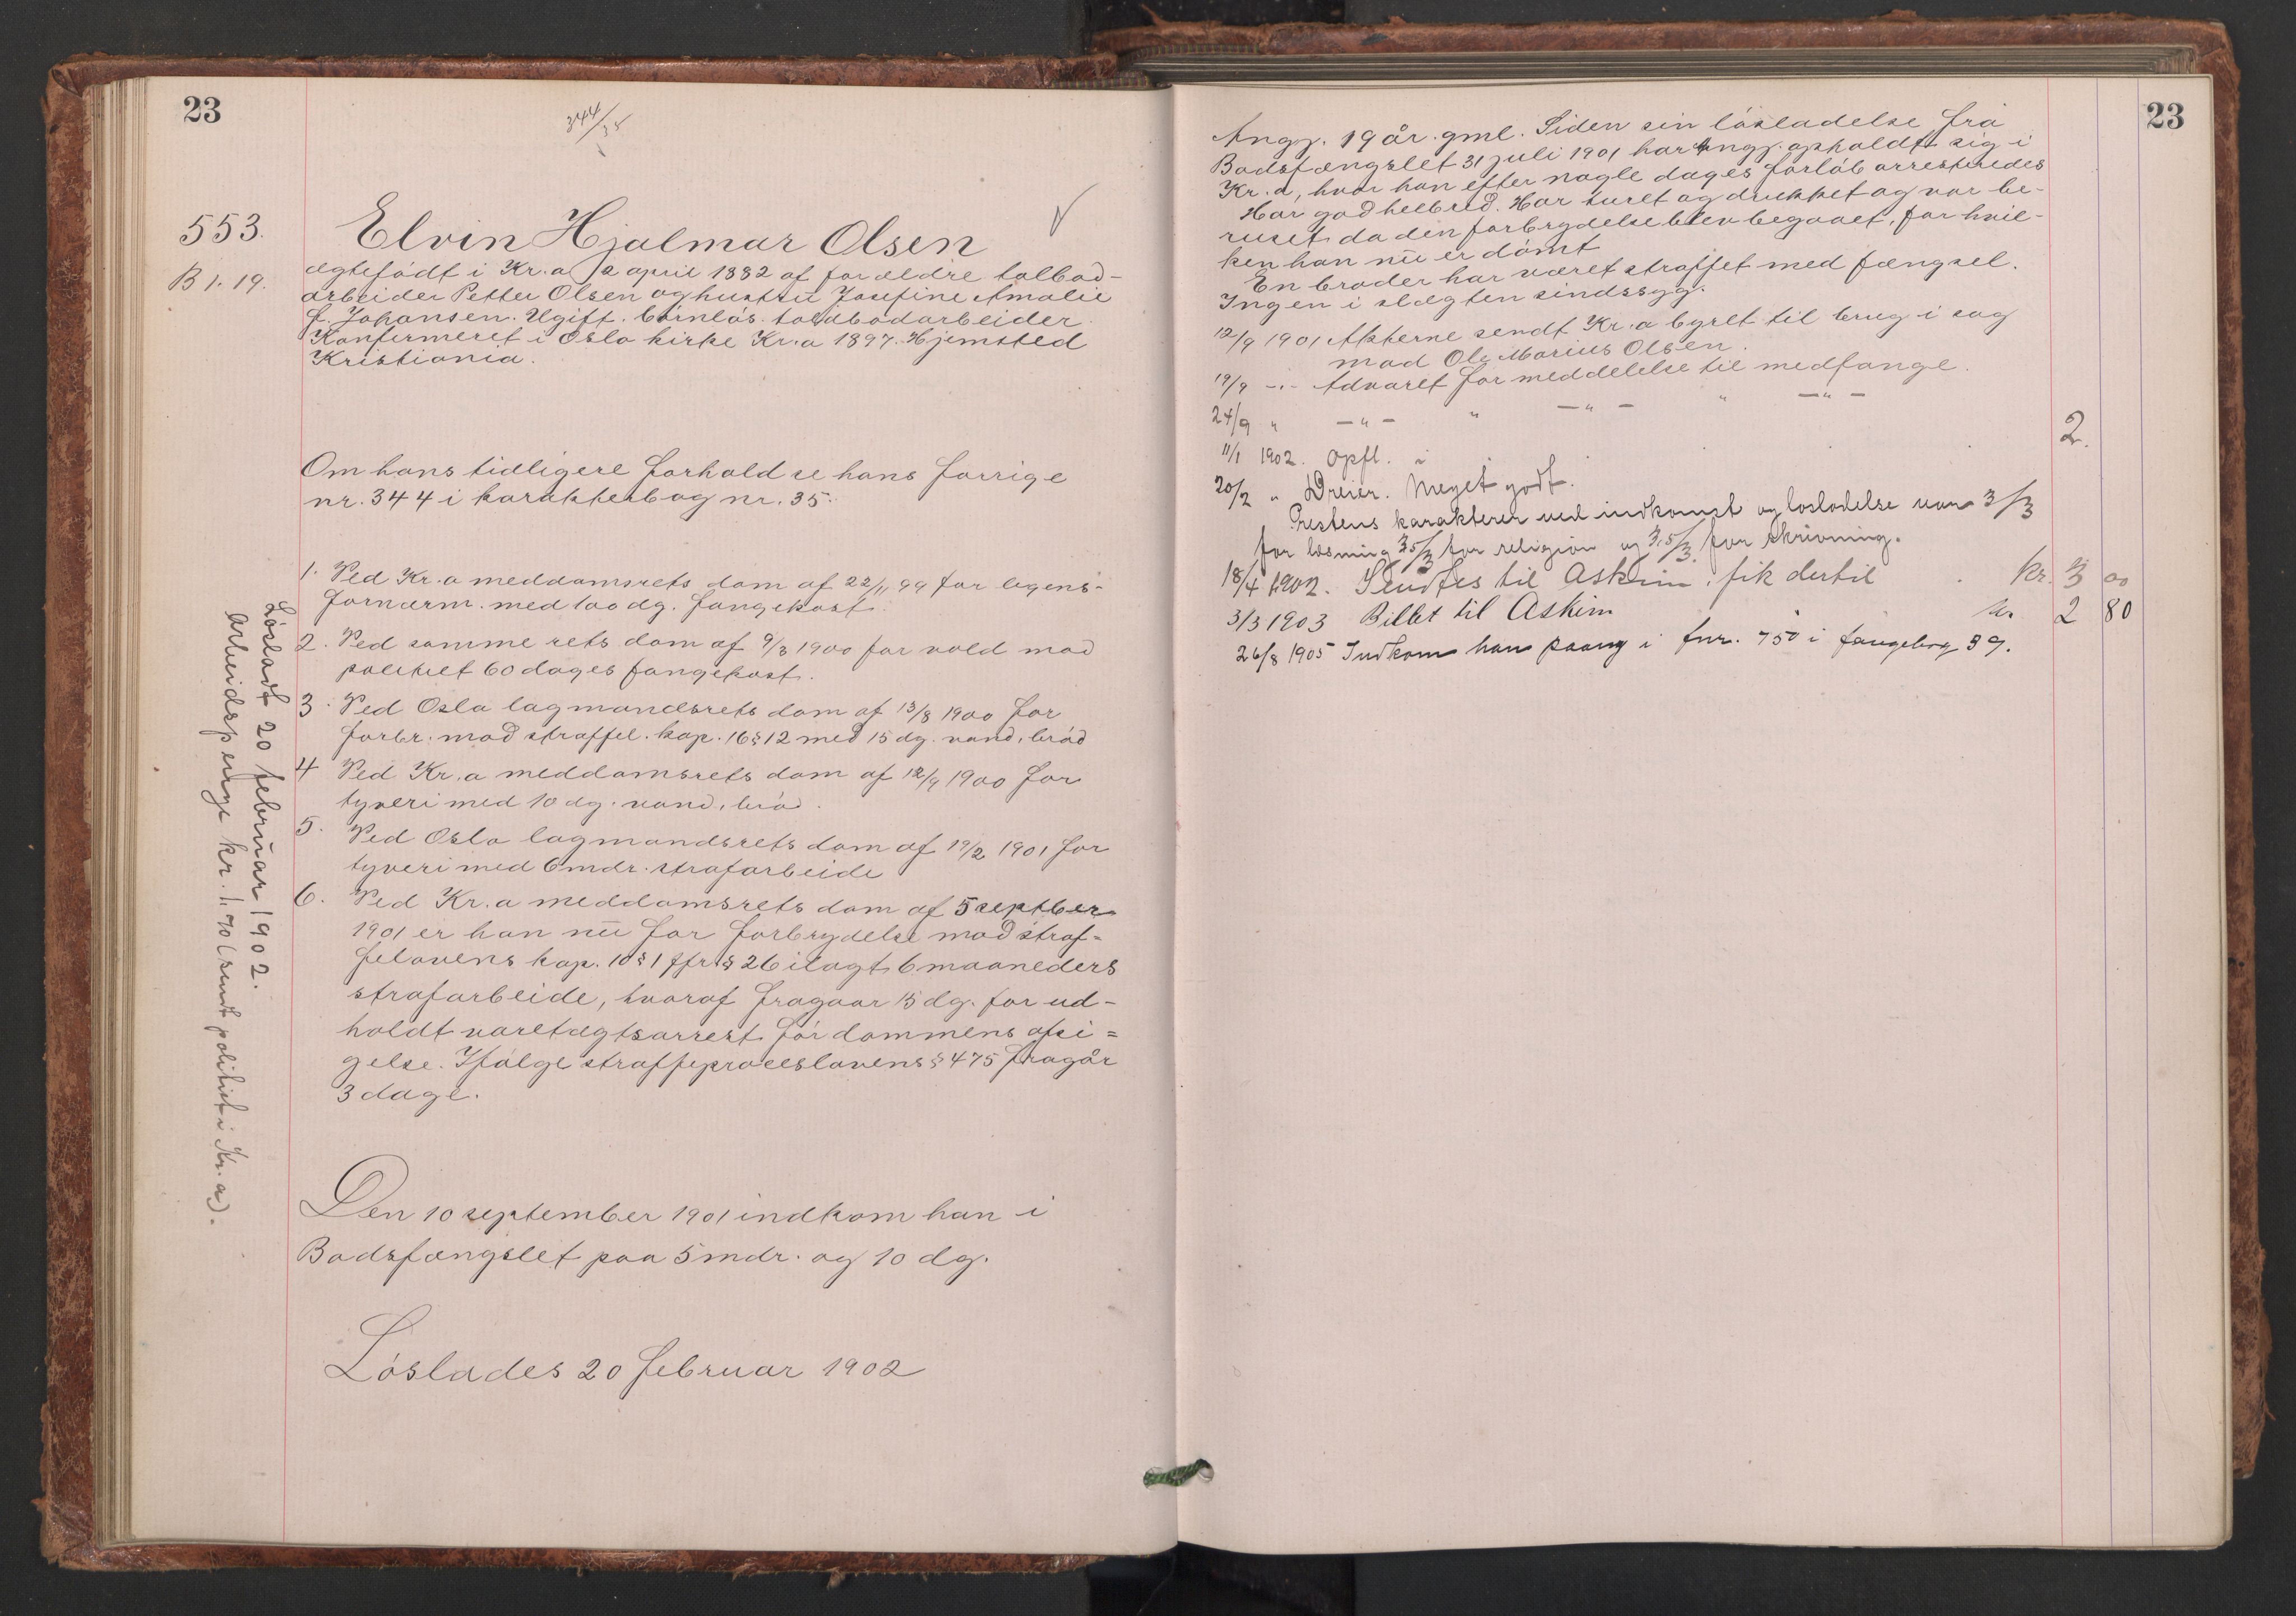 23
344/35
553.
Elvin Hjalmar Olsen
B 1. 19.
ægtefödt i Kr.a 2 april 1882 af forældre tolbod-
arbeider Petter Olsen og hustru Josefine Amalie
f. Johansen. Ugift. barnlös. toldbodarbeider.
Konfirmeret i Oslo kirke Kr.a 1897. Hjemsted
Kristiania.
Om hans tidligere forhold se hans forrige
nr. 344 i karakterbog nr. 35.
1. Ved Kr.a meddomsrets dom af 22/11 99 for legems-
fornærm. med 100 dg. fangekost.
2. Ved samme rets dom af 9/3 1900 for vold mod
politiet 60 dages fangekost.
3. Ved Oslo lagmandsrets dom af 13/8 1900 for
forbr. mod straffel. kap. 16 § 12 med 15 dg. vand, bröd
4 Ved Kr.a meddomsrets dom af 12/9 1900 for
tyveri med 10 dg. vand, bröd.
5. Ved Oslo lagmandsrets dom af 19/2 1901 for
tyveri med 6 mdr. strafarbeide
6. Ved Kr.a meddomsrets dom af 5 septber
1901 er han nu for forbrydelse mod straf-
felovens kap. 10 § 1 jfr. § 26 ilagt 6 maaneders
strafarbeide, hvoraf fragaar 15 dg. for ud-
holdt varetægtsarrest för dommens afsi-
gelse. Ifölge straffeproceslovens § 475 fragår
3 dage.
Den 10 september 1901 indkom han i
Bodsfængslet paa 5 mdr. og 10 dg.
Löslades 20 februar 1902
Lösladt 20 februar 1902.
Arbeidspenge kr. 1,90 (sendt politiet i Kr.a).
23
Angj. 19 år gml. Siden sin lösladelse fra
Bodsfængslet 31 juli 1901 har angj. opholdt sig i
Kr.a, hvor han efter nogle dages forlöb arresteredes
Har god helbred. Har turet og drukket og var be-
ruset da den forbrydelse blev begaaet, for hvil-
ken han nu er dömt
En broder har været straffet med fængsel.
Ingen i slægten sindssyg.
12/9 1901 Akterne sendt Kr.a byret til brug i sag
mod Ole Marius Olsen.
19/9 -"- Advaret for meddelelse til medfange.
24/9 " -"- " -"- " -"-
2.
11/1 1902. Opfl. i
20/2 " Dreier. Meget godt.
Prestens karakterer ved indkomst og losladelse var 3/3
for læsning 3,5/3 for religion og 3,5/3 for skrivning.
18/4 1902. Sendtes til Askim, fik dertil kr. 3 00
3/3 1903 Billet til Askim kr. 2 80
26/8 1905 Indkom han paany i fnr. 750 i fangebog 39.